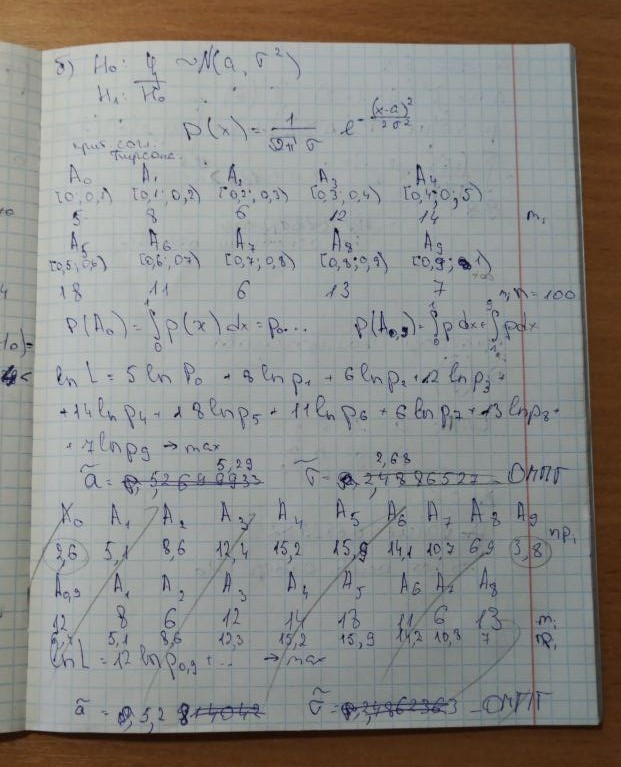 б) H₀: ξ ~ N(a, σ²)
H₁: H̅₀
p(x) = 1/(√2π σ) e^(-(x-a)²/2σ²)
крит. согл.
Пирсона.
A₀ A₁ A₂ A₃ A₄
[0; 0,1) [0,1; 0,2) [0,2; 0,3) [0,3; 0,4) [0,4; 0,5)
5 8 6 12 14 mᵢ
A₅ A₆ A₇ A₈ A₉
[0,5; 0,6) [0,6; 0,7) [0,7; 0,8) [0,8; 0,9) [0,9; 1)
18 11 6 13 7 n = 100
P(A₀) = ∫ p(x) dx = p₀... P(A₀,₉) = ∫ p dx + ∫ p dx
ln L = 5 ln p₀ + 8 ln p₁ + 6 ln p₂ + 12 ln p₃ +
+ 14 ln p₄ + 18 ln p₅ + 11 ln p₆ + 6 ln p₇ + 13 ln p₈ +
+ 7 ln p₉ → max
ã = 5,29 σ̃ = 2,68 - ОМПГ
A₀ A₁ A₂ A₃ A₄ A₅ A₆ A₇ A₈ A₉
2,6 5,1 8,6 12,4 15,2 15,9 14,1 10,7 6,9 3,8 npᵢ
A₀,₉ A₁ A₂ A₃ A₄ A₅ A₆ A₇ A₈
12 8 6 12 14 18 11 6 13 mᵢ
5,1 8,6 12,3 15,2 15,9 14,2 10,8 7 npᵢ
ln L = 12 ln p₀,₉ + ... → max
ã = 5,2 σ̃ = - ОМПГ